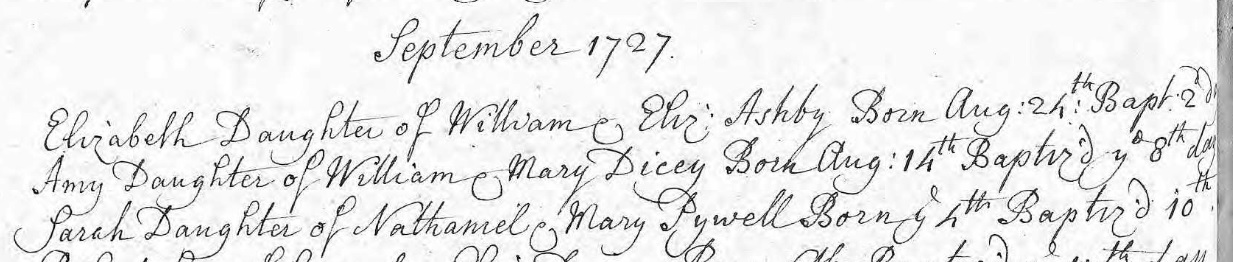 September 1727.
Elizabeth Daughter of William & Eliz: Ashby Born Aug: 24th: Bapt: 2d
Amy Daughter of William & Mary Dicey Born Aug: 14th Baptiz'd ye 8th day
Sarah Daughter of Nathaniel & Mary Pywell Born ye 4th Baptiz'd 10th.